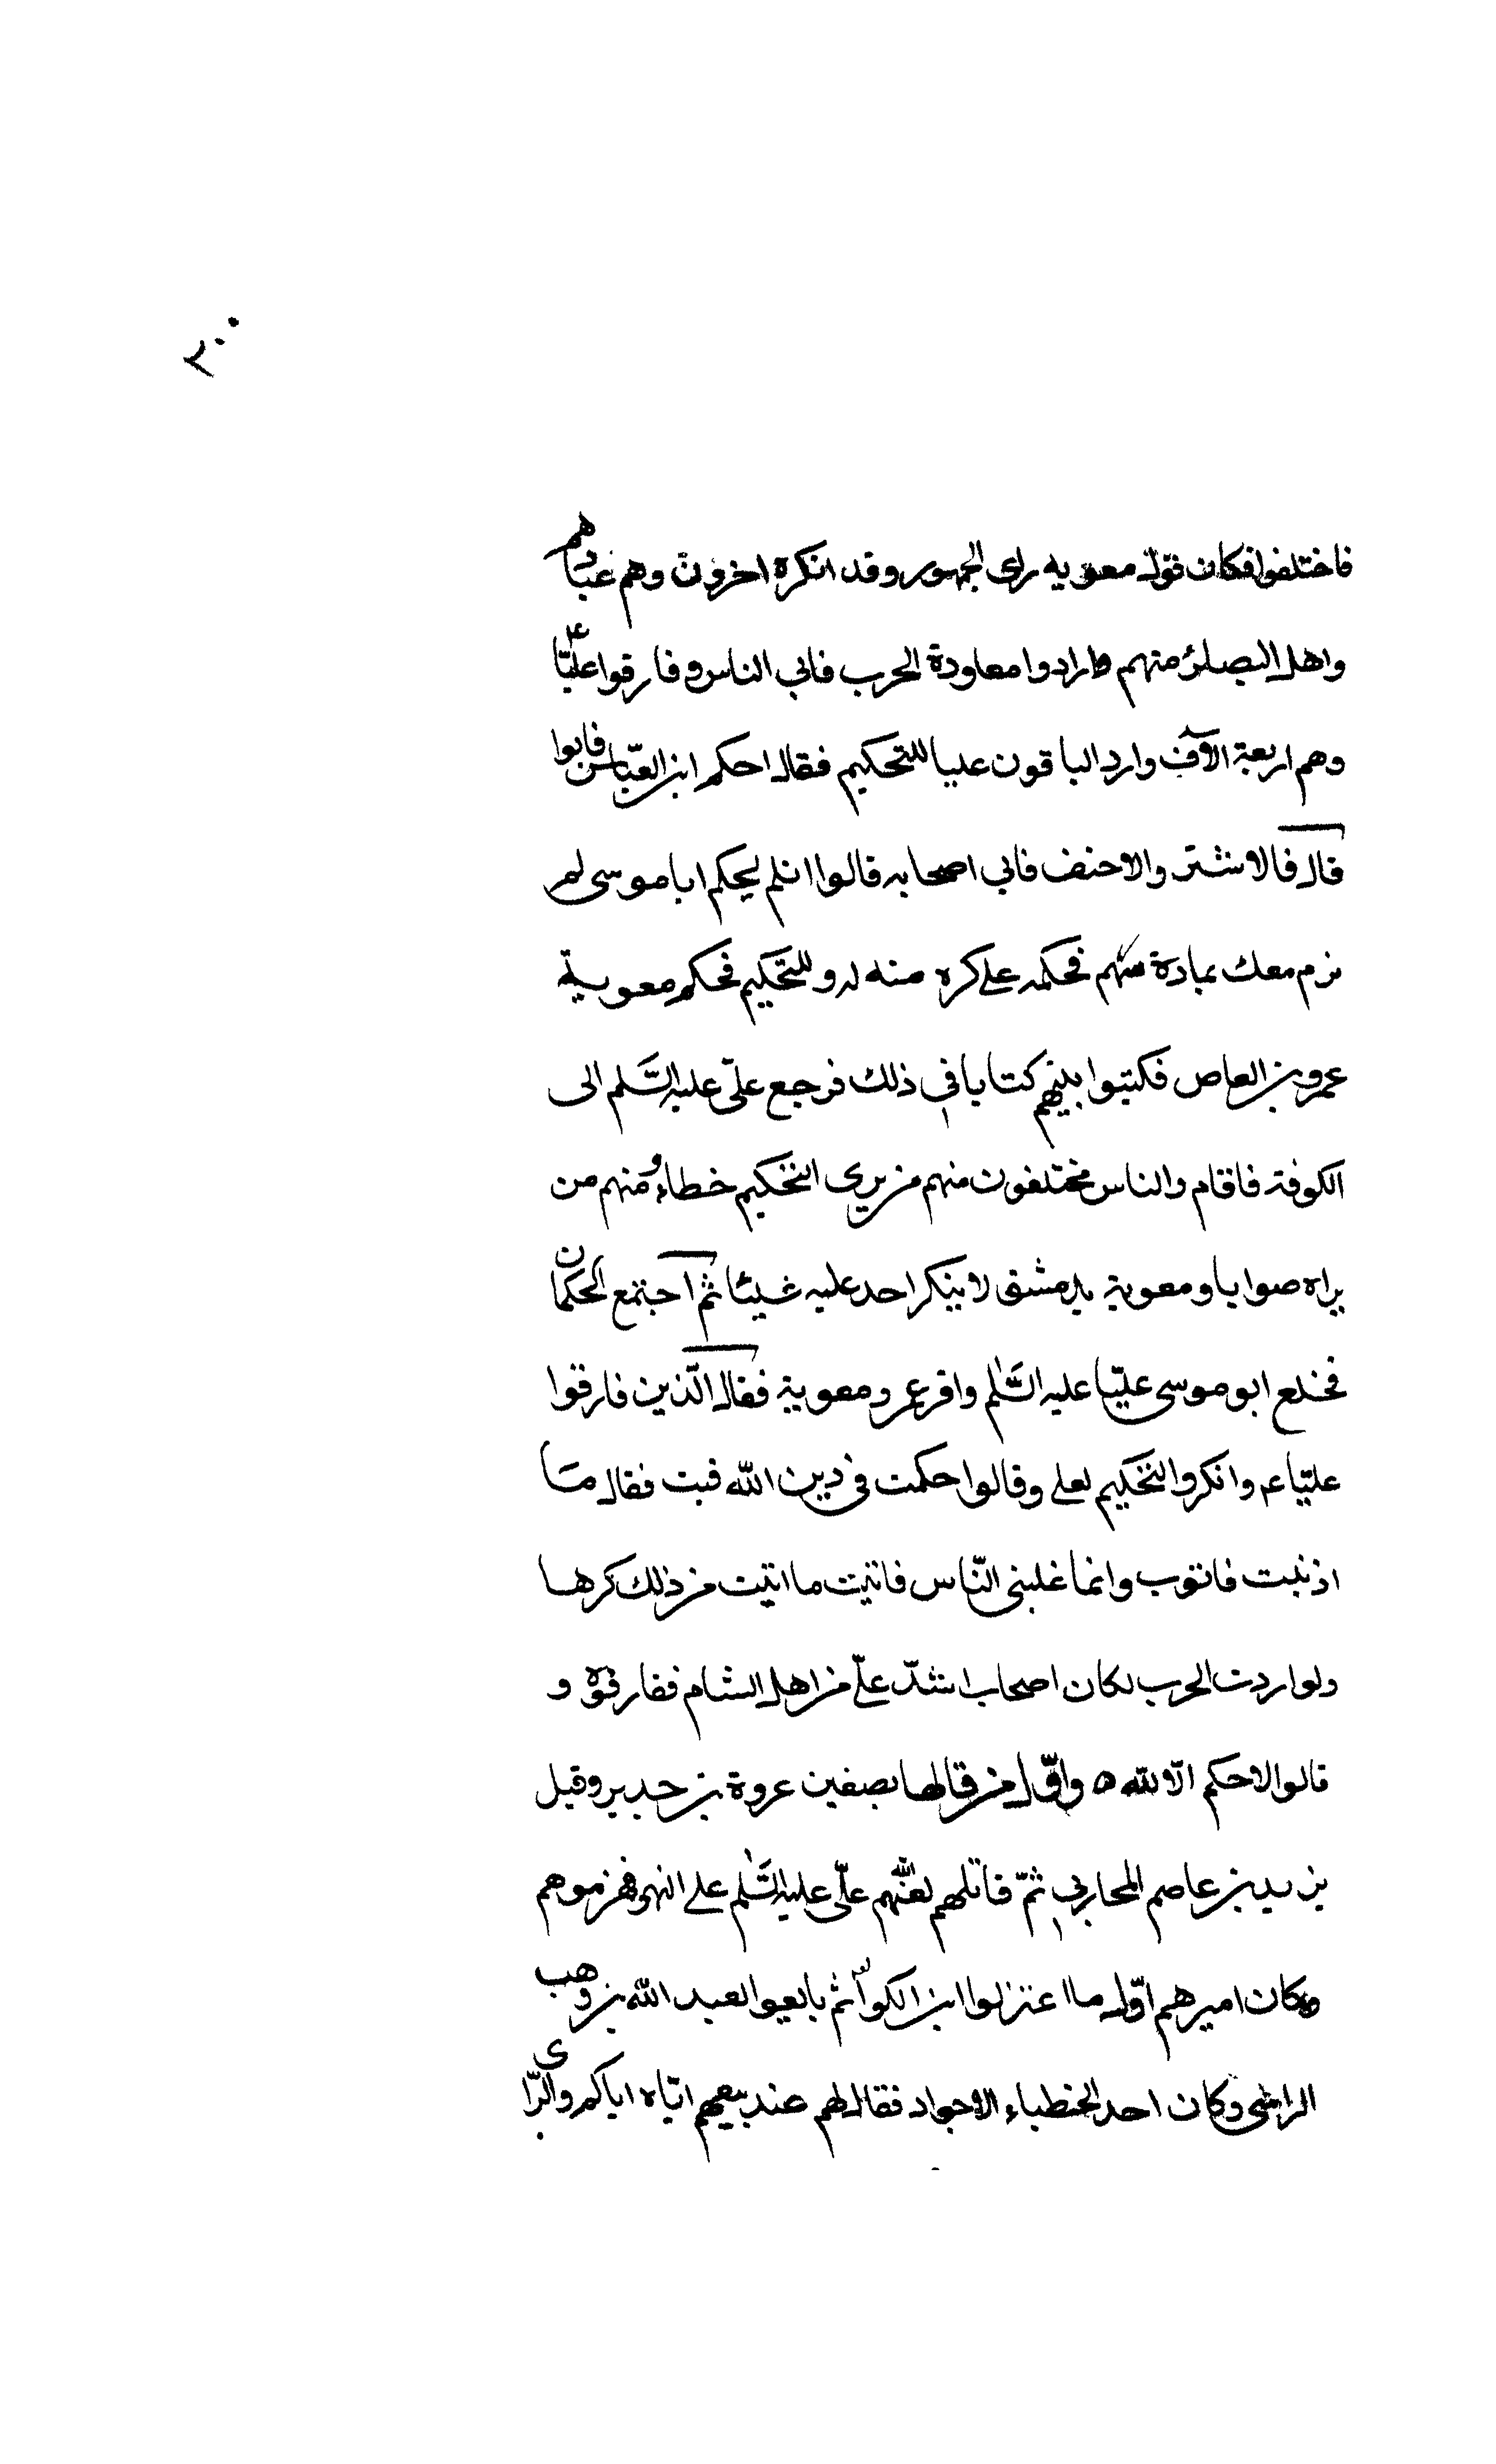 ٢٠٠
فاختلفوا فكان قول معويه راى الجمهور وقد انكره اخرون وهم عبادهم
واهل البصائر منهم وارادوا معاودة الحرب فابى الناس وفارقوا عليّا ع
وهم اربعة الآف واراد الباقون عليا للتحكيم فقال احكم ابن العبّاس فابوا
قال فالاشتر والاحنف فابى اصحابه قالوا ان لم يحكم ابا موسى لم
نرم معك بمادة سهم فحكمه على كره منه له وللتحكيم فحكم معوية
عمرو بن العاص فكتبوا بينهم كتابا فى ذلك فرجع علىّ عليه السَّلم الى
الكوفة فاقام والناس مختلفون منهم من يرى التحكيم خطاء ومنهم من
يراه صوابا ومعوية بدمشق لا ينكر احد عليه شيئا ثم اجتمع الحكمان
فخلع ابو موسى عليّا عليه السَّلم واقر عمرو معوية فقال الّذين فارقوا
عليّا ع م وانكروا التحكيم لعلى وقالوا حكمت فى دين الله فتب فقال ما
اذنبت فاتوب وانما غلبنى النّاس فاتيت ما اتيت من ذلك كرها
ولو اردت الحرب لكان اصحابى اشدّ علىّ من اهل الشام ففارقوه و
قالوا لا حكم الّا لله ه واوّل من قالها بصفين عروة بن حدير وقيل
يزيد بن عاصم المحاربى ثمّ قاتلهم لعنهم الله علىّ عليه السَّلم على النهر فهزموهم
وكان اميرهم اوّل ما اعتزلوا ابن الكوا ثم بايعوا لعبد الله بن وهب
الراسى وكان احد الخطباء الاجواد فقال لهم عند بيعتهم ايّاه اياكم والراى